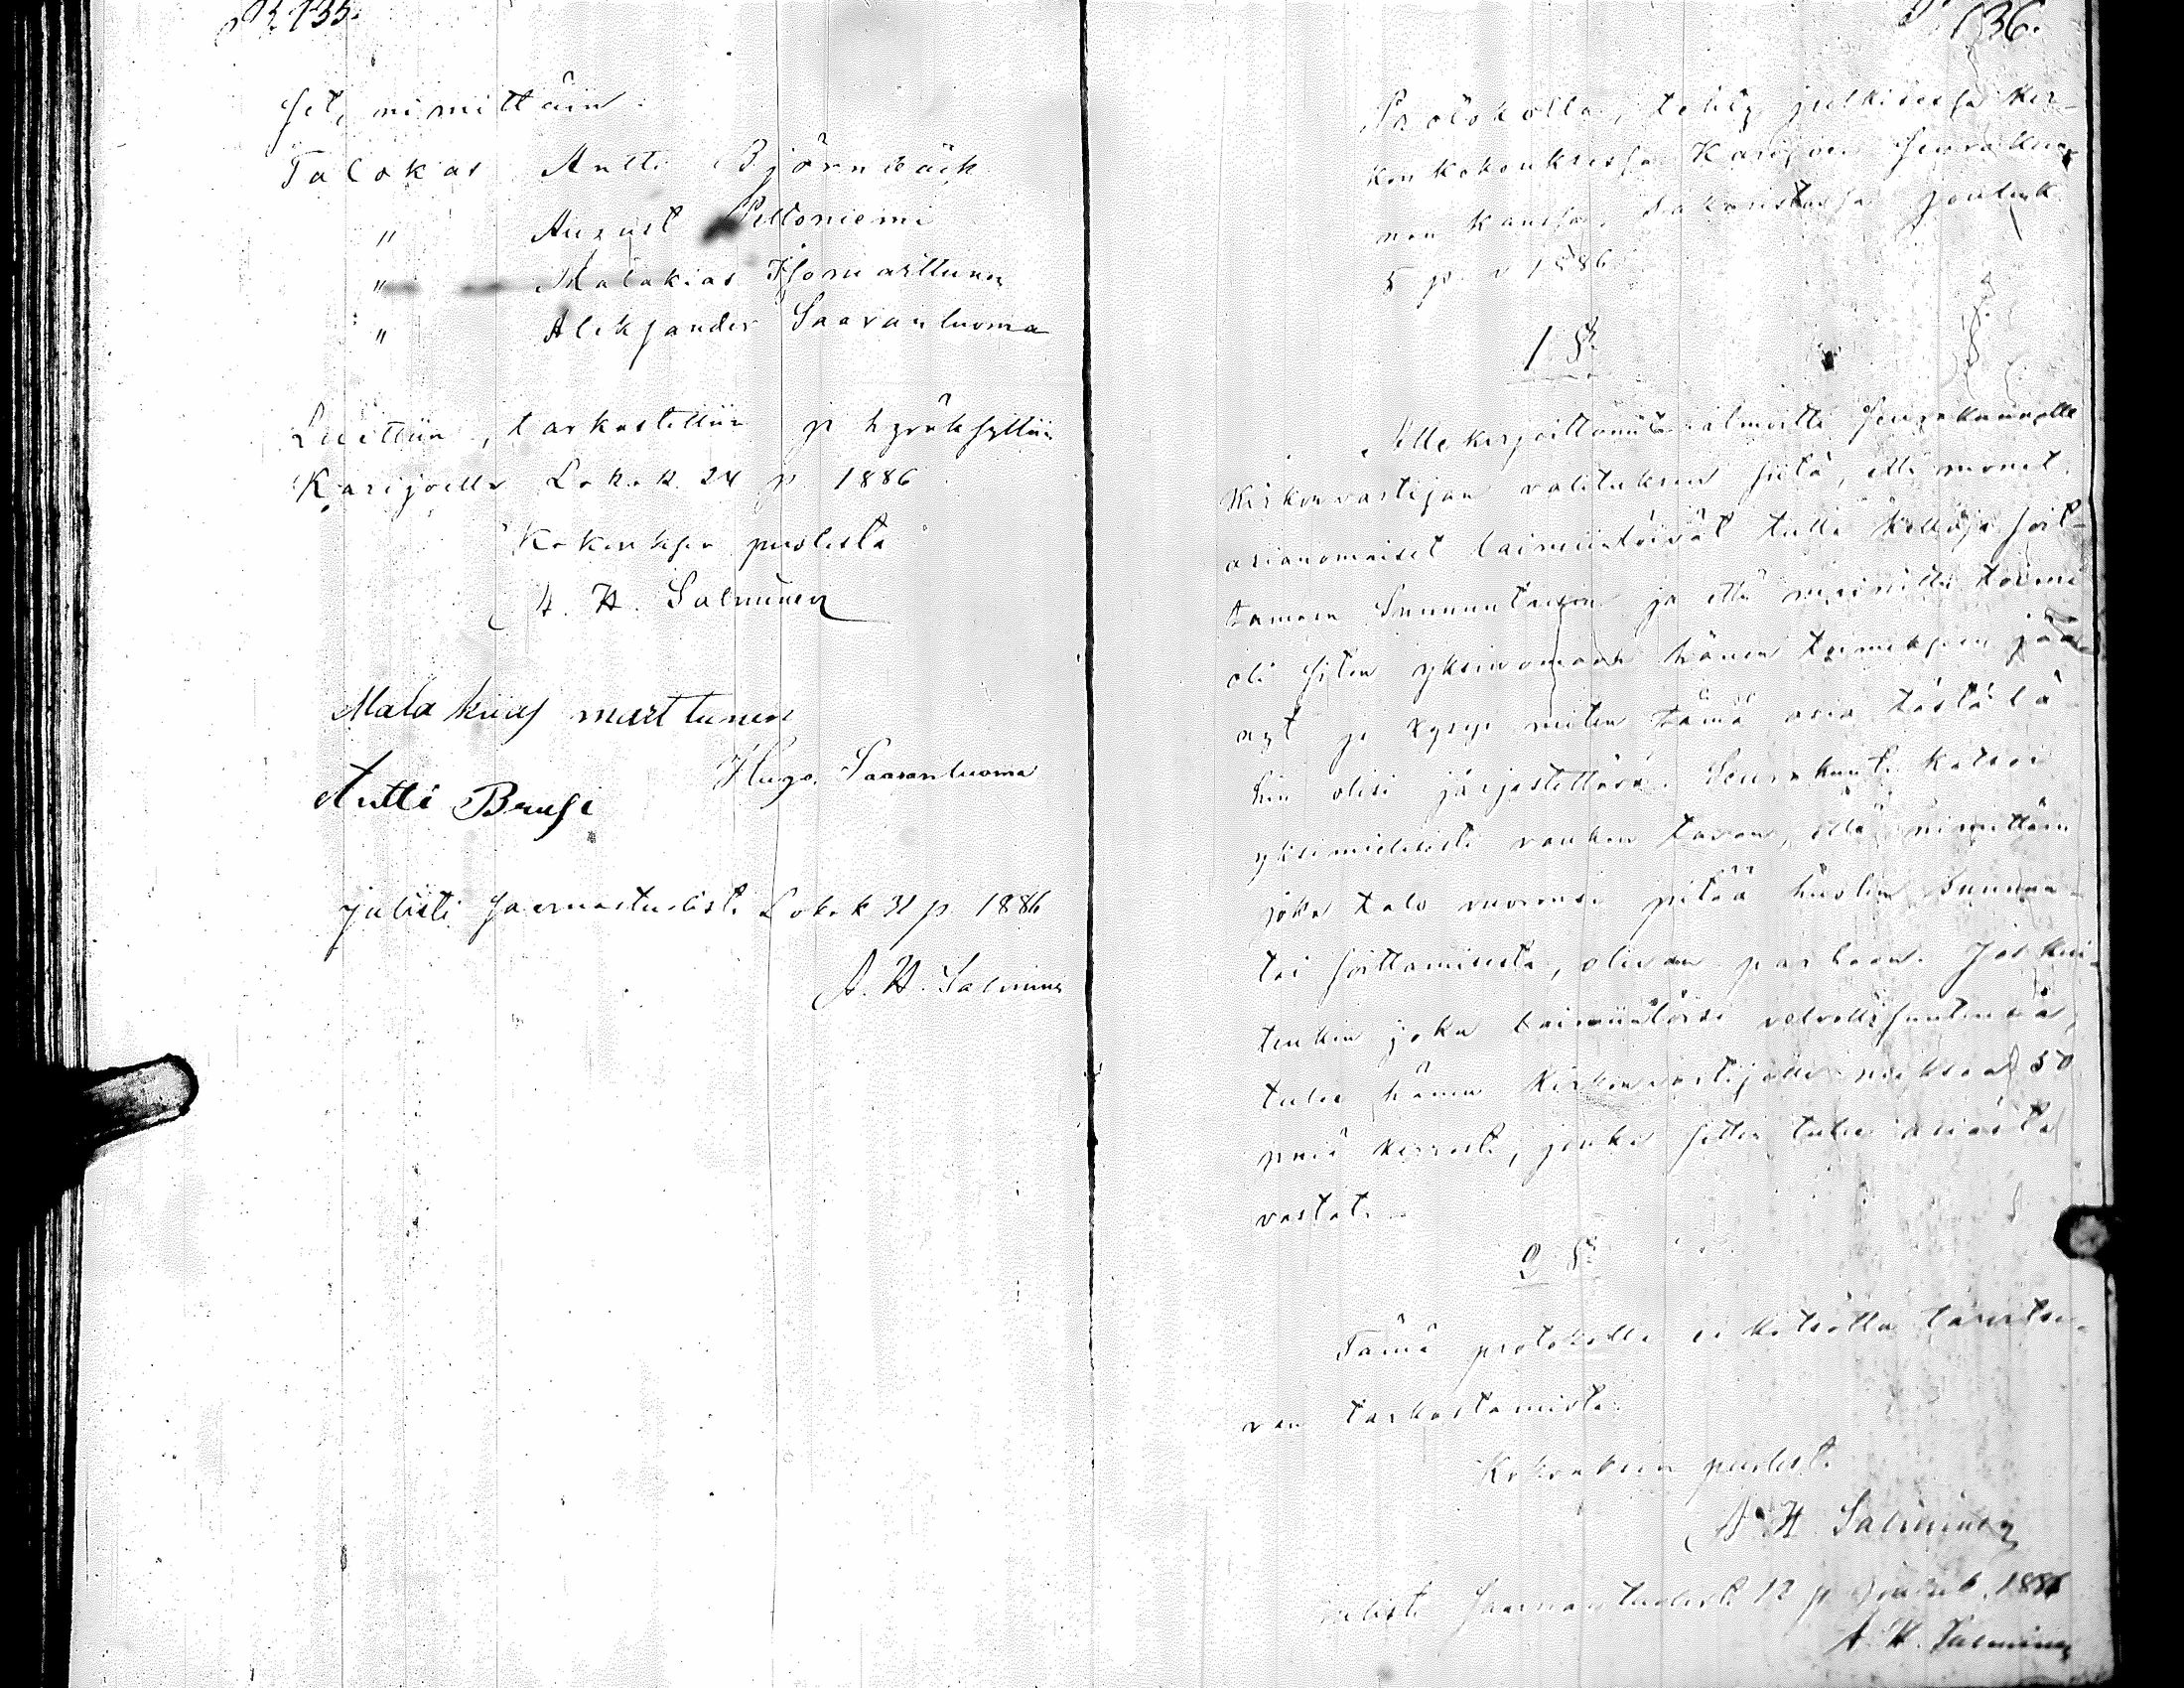 135.
set, nimittäin:
Talokas Antti Björnbäck
" August Peltoniemi
" Malakias Isomarttunen
" Aleksander Saarenluoma
Luettiin, tarkastettiin ja hyväksyttiin
Karijoella Lokak. 24 p. 1886
Kokouksen puolesta
A. H. Salminen
Malakias marttunen
Hugo Saarenluoma
Antti Brusi
julisti saarnastuolista Lokak 31 p. 1886
A. H. Salminen
136.
Protokolla, tehty julkisessa kir-
kon kokouksessa Karijoen seurakun-
nan kanssa, sakaristossa Jouluk.
5 p. v 1886
1 §
Allekirjoittanut ilmoitti seurakunnalle
kirkonvartijan valituksen siitä, että monet
asianomaiset laiminlöivät tulla kelloja soit-
tamaan Sunnuntaisin ja että mainittu toimi
oli siten yksinomaan hänen toimeksensa jää-
nyt ja kysyi miten tämä asia tästälä-
hin olisi järjestettävä. Seurakunta katsoi
yksimielisesti vanhan tavan, että nimittäin
joka talo vuoronsa pitää huolen Sunnun-
tai soittamisesta, olevan parhaan. Jos kui-
tenkin joku laiminlöisi velvollisuutensa,
tulee hänen kirkonvartijalle maksaa 50
pniä kerralta, jonka sitten tulee asiasta
vastata.
2 §
Tämä protokolla ei katsottu tarvitse-
van tarkastamista.
Kokouksen puolesta
A. H. Salminen
julisti saarnastuolista 12 p Jouluk. 1886
A. H. Salminen